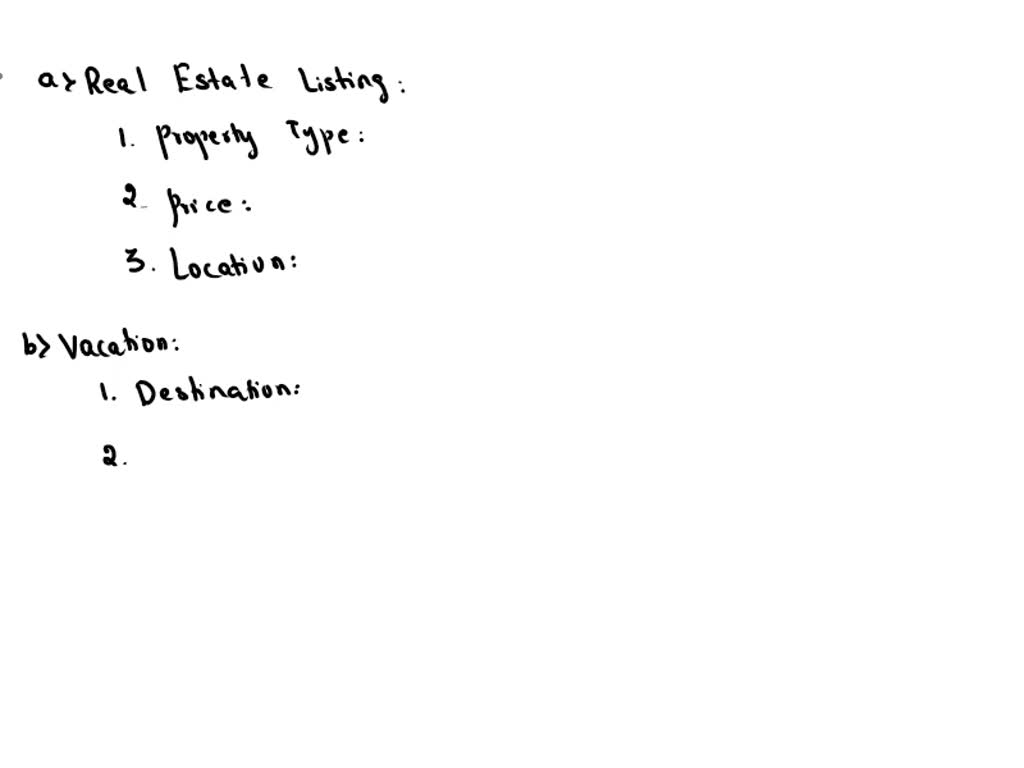 a> Real Estate Listing:
1. Property Type:
2. Price:
3. Location:
b> Vacation:
1. Destination:
2.